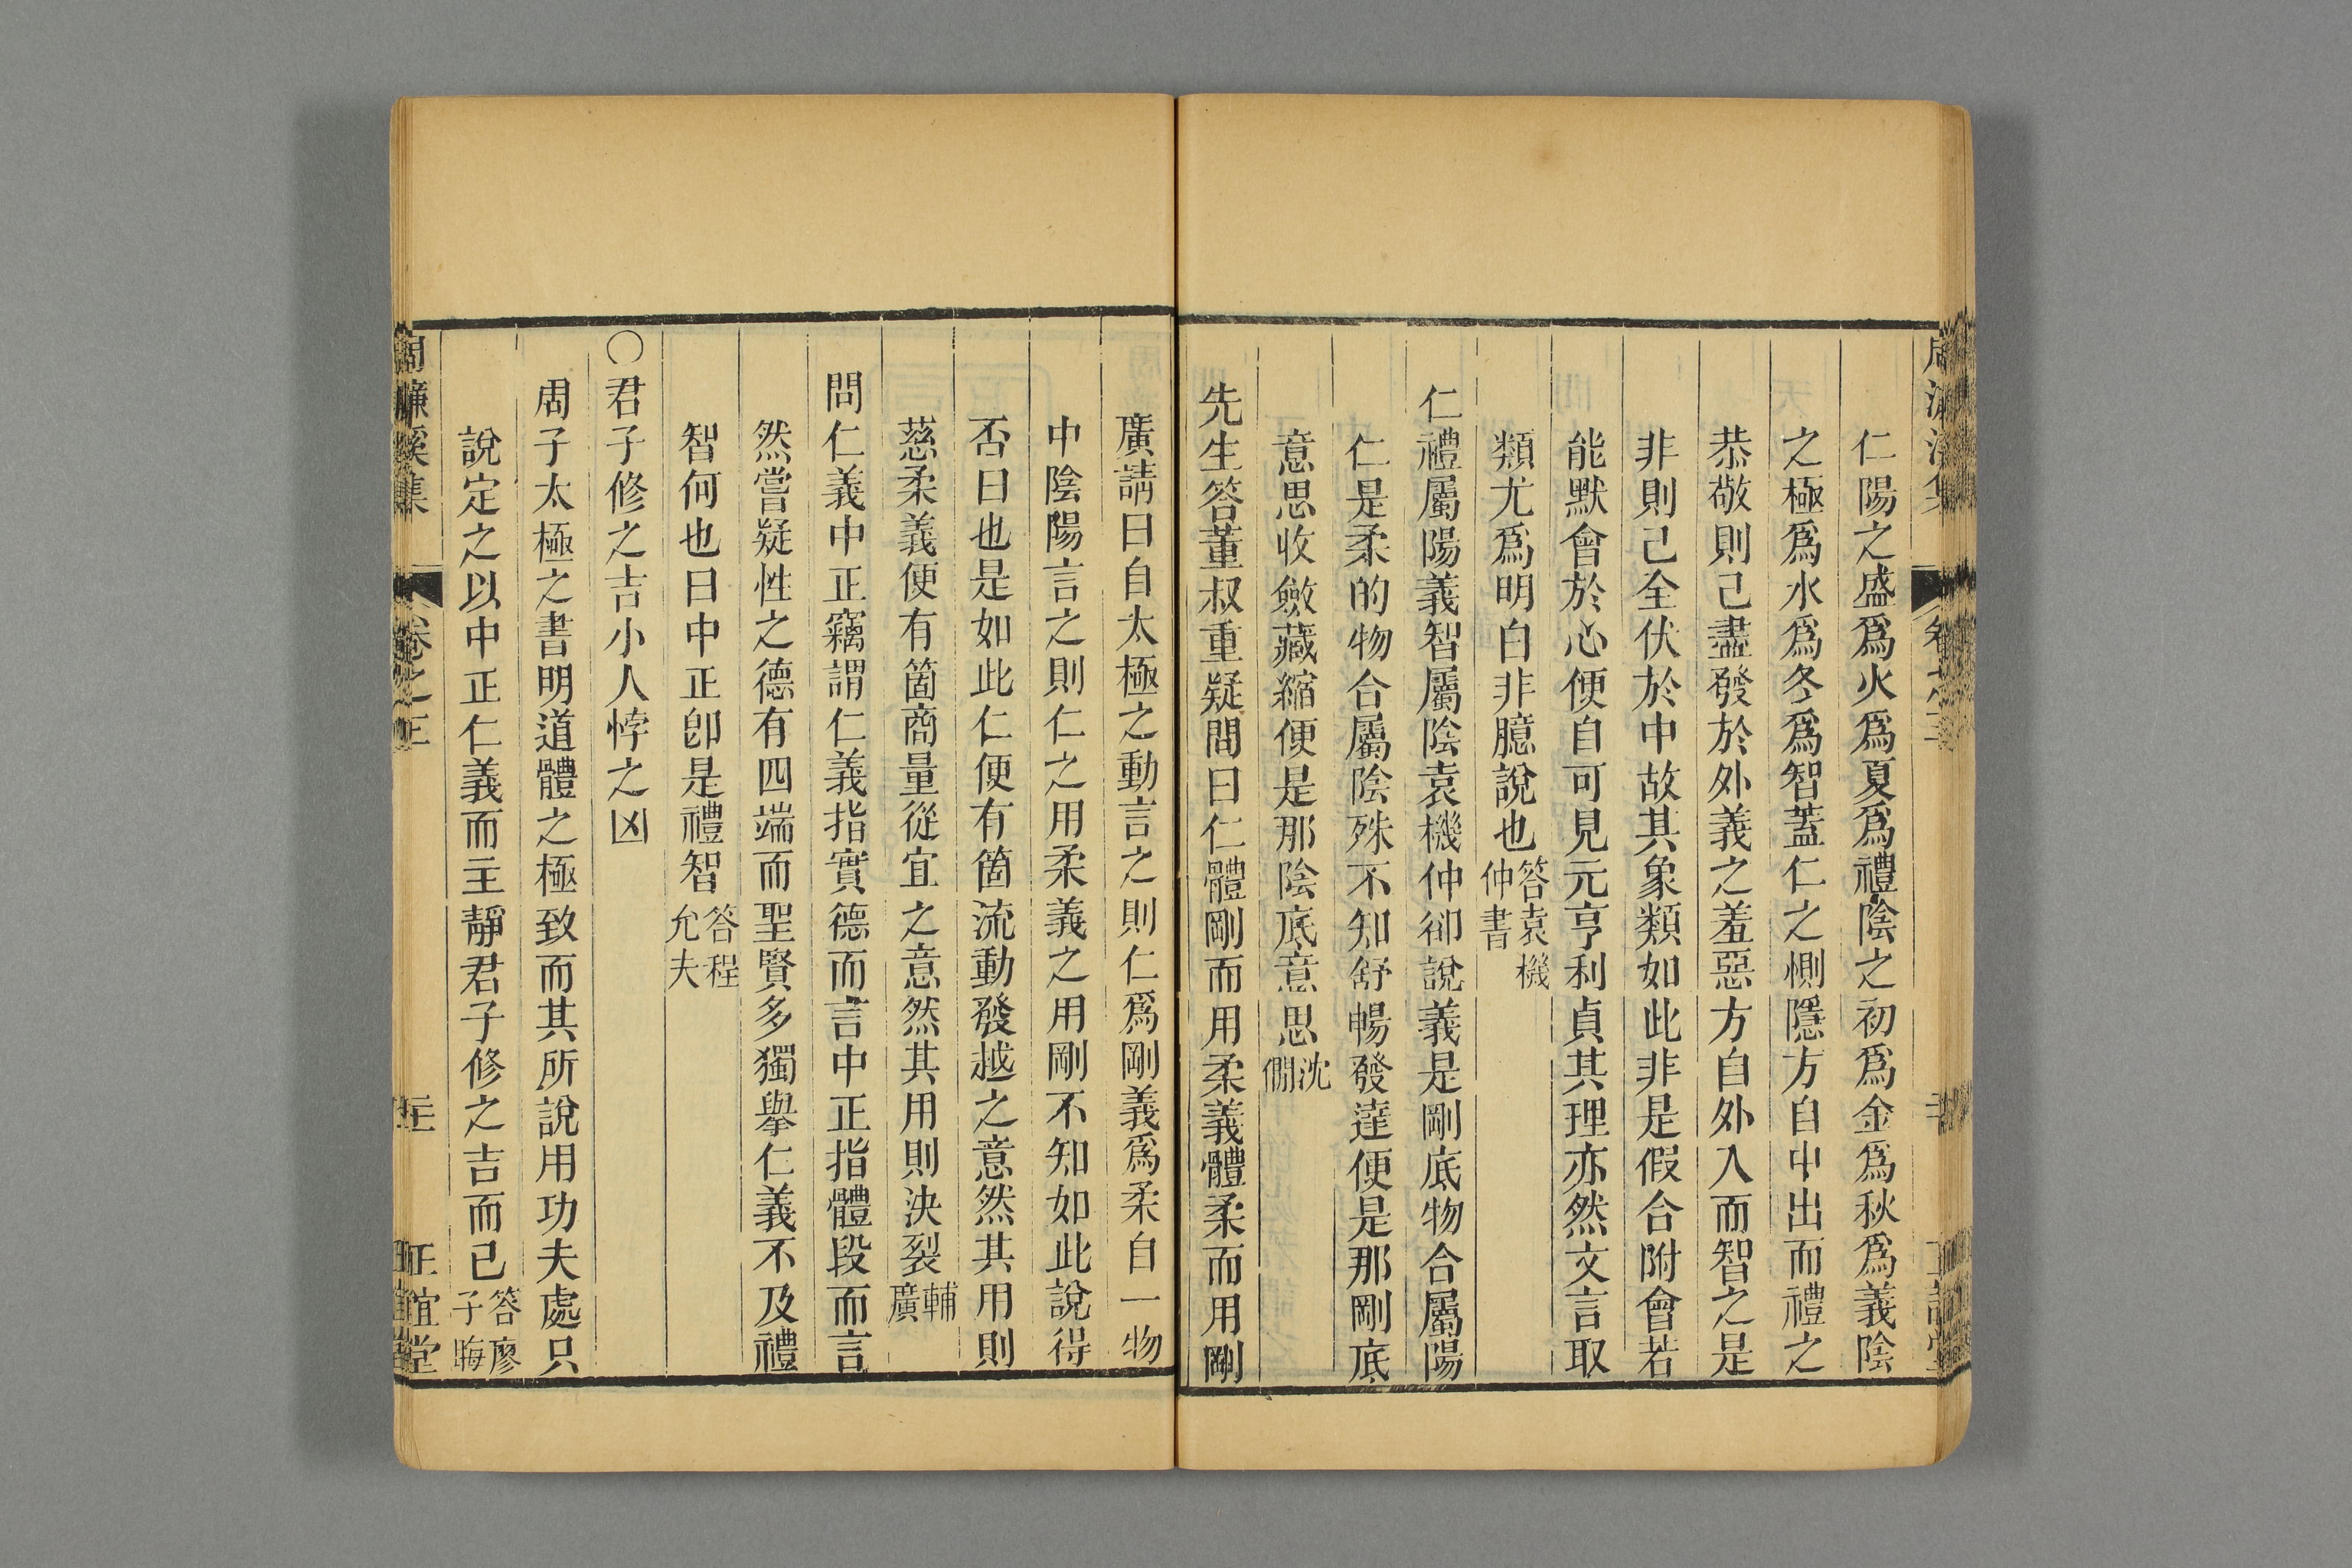 仁陽之盛爲火爲夏爲禮陰之初爲金爲秋爲義陰
之極爲水爲冬爲智蓋仁之惻隱方自中出而禮之
恭敬則己盡發於外義之羞惡方自外入而智之是
非則己全伏於中故其象類如此非是假合附會若
能默會於心便自可見元亨利貞其理亦然文言取
類尤爲明白非臆說也答袁機仲書
仁禮屬陽義智屬陰袁機仲卻說義是剛底物合屬陽
仁是柔的物合屬陰殊不知舒暢發達便是那剛底
意思收斂藏縮便是那陰底意思沈僩
先生答董叔重疑問曰仁體剛而用柔義體柔而用剛
廣請曰自太極之動言之則仁爲剛義爲柔自一物
中陰陽言之則仁之用柔義之用剛不知如此說得
否曰也是如此仁便有箇流動發越之意然其用則
慈柔義便有箇商量從宜之意然其用則決裂輔廣
問仁義中正竊謂仁義指實德而言中正指體段而言
然嘗疑性之德有四端而聖賢多獨舉仁義不及禮
智何也曰中正卽是禮智答程允夫
○君子修之吉小人悖之凶
周子太極之書明道體之極致而其所說用功夫處只
說定之以中正仁義而主靜君子修之吉而已答廖子晦
周濂溪集 卷之 正誼堂